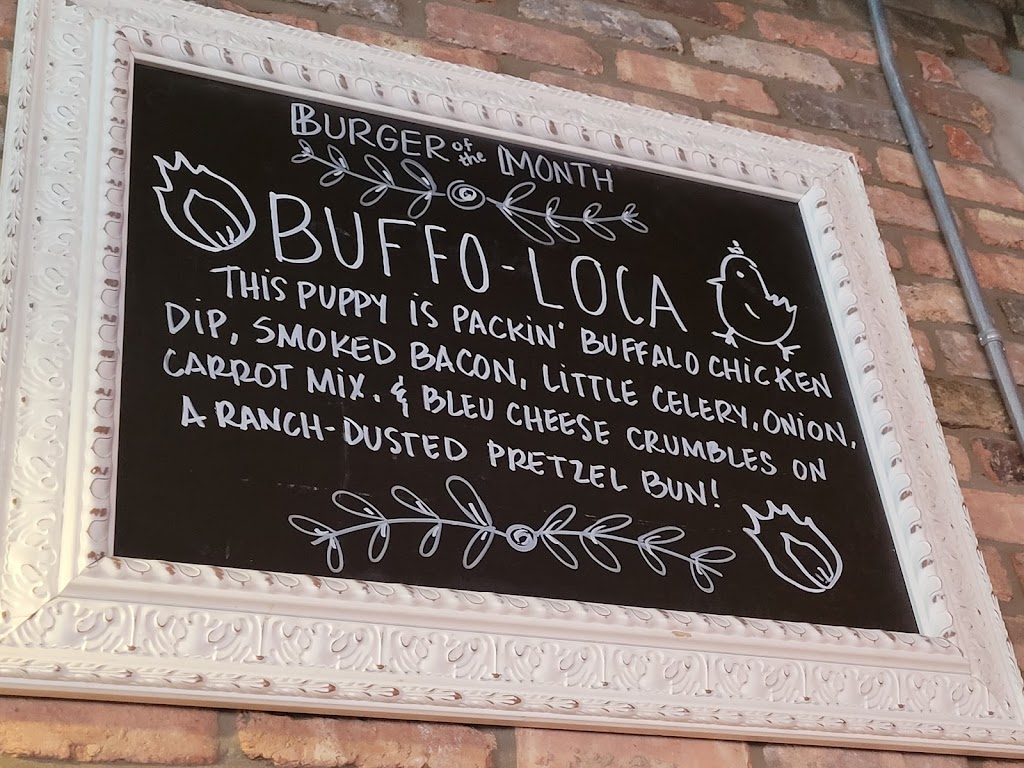 BURGER of the MONTH
BUFFO-LOCA
THIS PUPPY IS PACKIN' BUFFALO CHICKEN
DIP, SMOKED BACON, LITTLE CELERY, ONION,
CARROT MIX, & BLEU CHEESE CRUMBLES ON
A RANCH-DUSTED PRETZEL BUN!